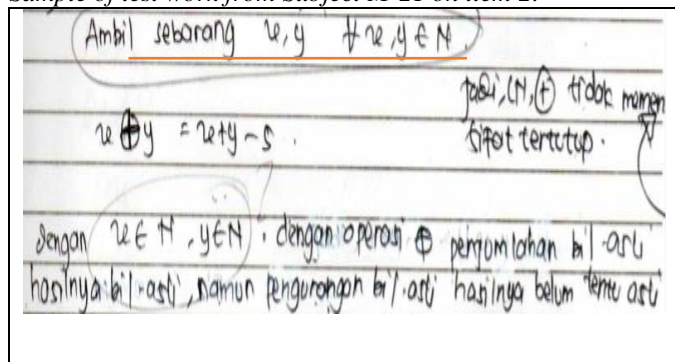 Sample of test work from Subject on item 2.
Ambil sebarang x, y ∀ x, y ∈ N.
Jadi, (N, ⊕) tidak memen
x ⊕ y = x+y-5 .
sifat tertutup.
dengan x ∈ N, y ∈ N. dengan operasi ⊕ penjumlahan bil. asli
hasilnya bil. asli, namun pengurangan bil. asli hasilnya belum tentu asli